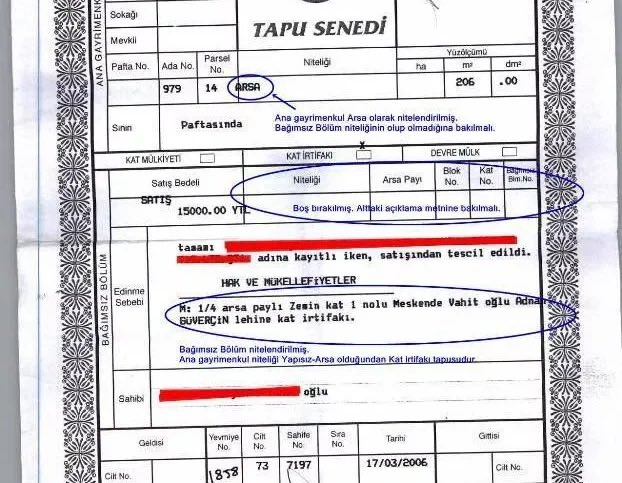 Sokağı
TAPU SENEDİ
Mevkii
ANA GAYRİMENK
Pafta No. Ada No. Parsel No. Niteliği Yüzölçümü
ha m² dm²
979 14 ARSA 206 .00
Ana gayrimenkul Arsa olarak nitelendirilmiş.
Bağımsız Bölüm niteliğinin olup olmadığına bakılmalı.
Sınırı Paftasında
KAT MÜLKİYETİ KAT İRTİFAKI X DEVRE MÜLK
Satış Bedeli Niteliği Arsa Payı Blok No. Kat No. Bağımsız Blm.No.
SATIŞ
15000.00 YTL
Boş bırakılmış. Alttaki açıklama metnine bakılmalı.
BAĞIMSIZ BÖLÜM
Edinme Sebebi
tamamı
adına kayıtlı iken, satışından tescil edildi.
HAK VE MÜKELLEFİYETLER
M: 1/4 arsa paylı Zemin kat 1 nolu Meskende Vahit oğlu Adnan
GÜVERÇİN lehine kat irtifakı.
Bağımsız Bölüm nitelendirilmiş.
Ana gayrimenkul niteliği Yapısız-Arsa olduğundan Kat İrtifakı tapusudur.
Sahibi oğlu
Geldisi Yevmiye No. Cilt No. Sahife No. Sıra No. Tarihi Gittisi
Cilt No. 1858 73 7197 17/03/2006 Cilt No.